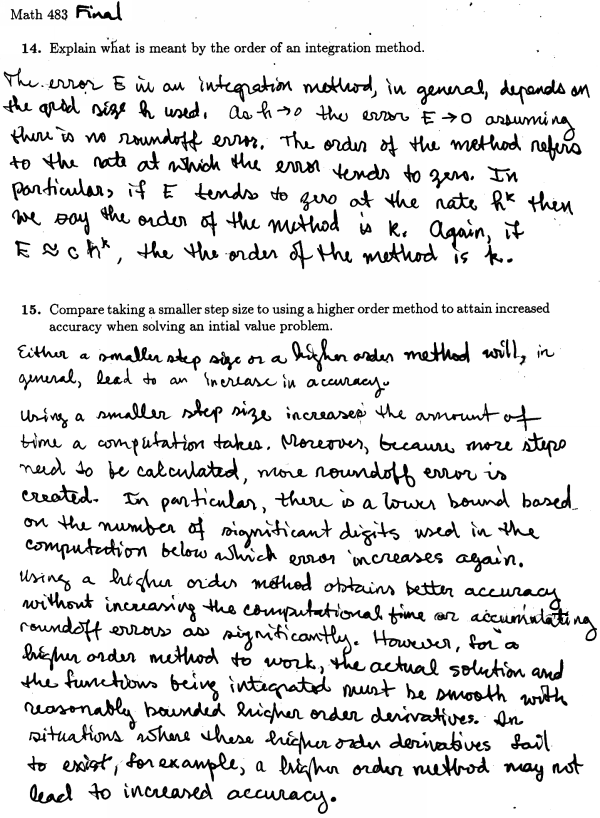 Math 483 Final
14. Explain what is meant by the order of an integration method.
The error E in an integration method, in general, depends on
the grid size h used. As h→0 the error E→0 assuming
there is no roundoff error. The order of the method refers
to the rate at which the error tends to zero. In
particular, if E tends to zero at the rate h^k then
we say the order of the method is k. Again, if
E ≈ c h^k, the the order of the method is k.
15. Compare taking a smaller step size to using a higher order method to attain increased
accuracy when solving an intial value problem.
Either a smaller step size or a higher order method will, in
general, lead to an increase in accuracy.
Using a smaller step size increases the amount of
time a computation takes. Moreover, because more steps
need to be calculated, more roundoff error is
created. In particular, there is a lower bound based
on the number of significant digits used in the
computation below which error increases again.
Using a higher order method obtains better accuracy
without increasing the computational time or accumulating
roundoff errors as significantly. However, for a
higher order method to work, the actual solution and
the functions being integrated must be smooth with
reasonably bounded higher order derivatives. In
situations where these higher order derivatives fail
to exist, for example, a higher order method may not
lead to increased accuracy.